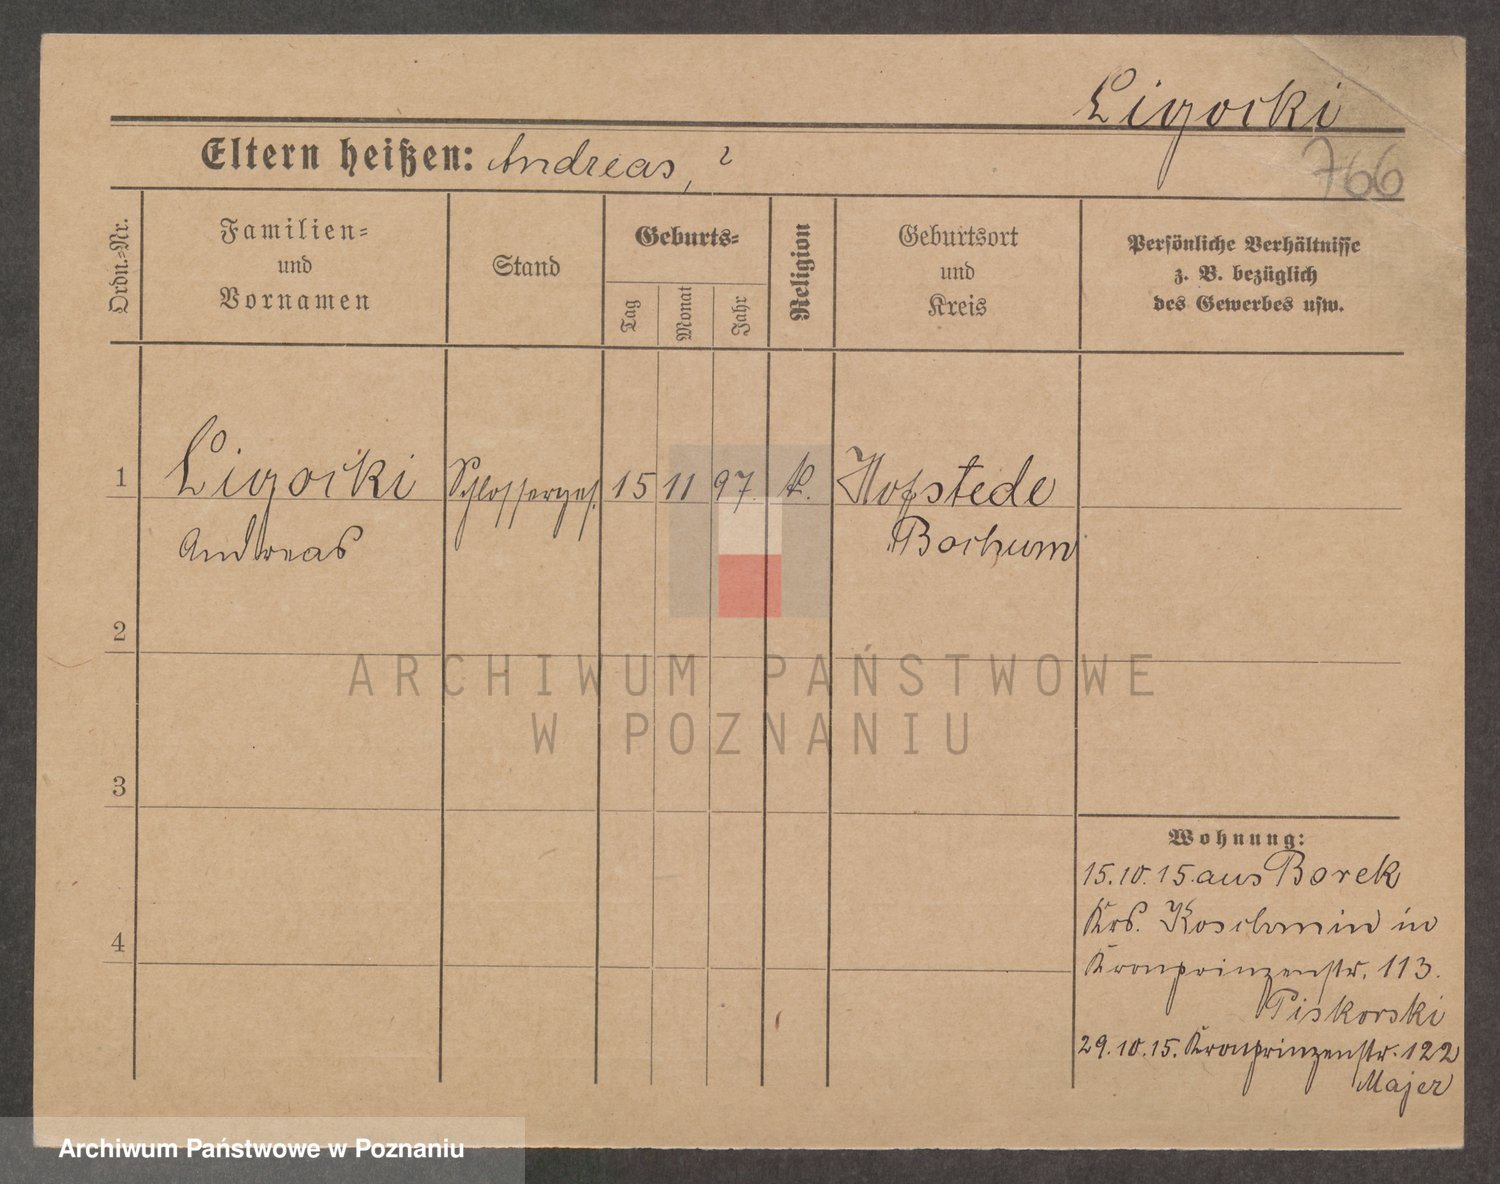 Ligocki
766
Eltern heißen: Andreas, ?
Ordn.-Nr.
Familien-
und
Vornamen
Stand
Geburts-
Tag
Monat
Jahr
Religion
Geburtsort
und
Kreis
Persönliche Verhältnisse
z. B. bezüglich
des Gewerbes usw.
1 Ligocki Schlosserges. 15 11 97. k. Hofstede
Andreas Bochum
2
3
4
Wohnung:
15.10.15. aus Borek
Krs. Koschmin in
Kronprinzenstr. 113.
Piskorski
29.10.15. Kronprinzenstr. 122
Majer
ARCHIWUM PAŃSTWOWE
W POZNANIU
Archiwum Państwowe w Poznaniu